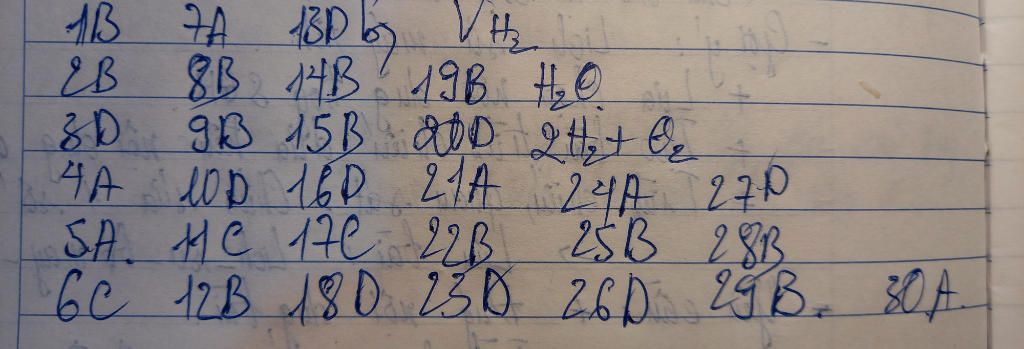 1B 7A 13D b, VH₂
2B 8B 14B 19B H₂O.
3D 9B 15B 20D 2H₂ + O₂
4A 10D 16D 21A 24A 27D
5A. 11C 17C 22B 25B 28B
6C 12B 18D 23D 26D 29B. 30A.